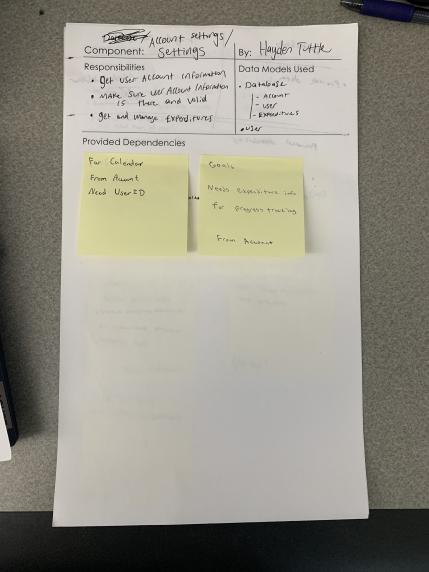 Account settings/
Component: Settings
By: Hayden Tuttle
Responsibilities
• get user Account information
• Make sure user Account Information
is there and valid
• get and manage Expenditures
Data Models Used
• Database
- Account
- User
- Expenditures
• User
Provided Dependencies
For Calendar
From Account
Need UserID
Goals
Needs Expenditure info
for progress tracking
From Account